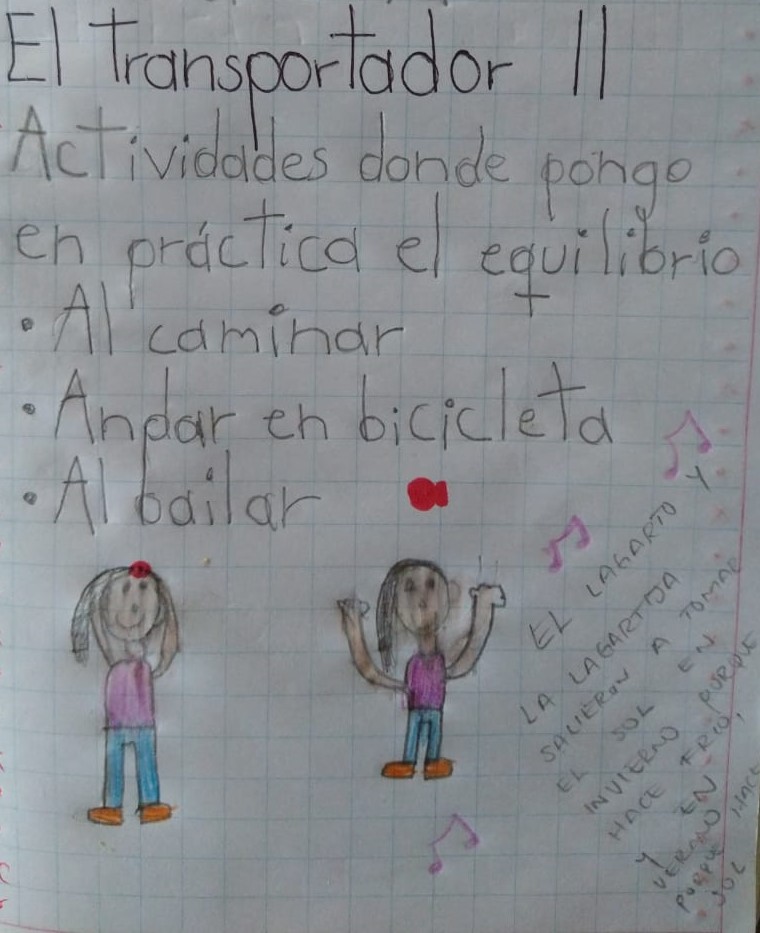 El Transportador II
Actividades donde pongo
en práctica el equilibrio
• Al caminar
• Andar en bicicleta
• Al bailar
EL LAGARTO Y
LA LAGARTIJA
SALIERON A TOMAR
EL SOL EN
INVIERNO PORQUE
HACE FRIO,
Y EN
VERANO
PORQUE HACE
SOL